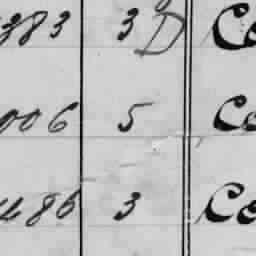 383 3 D Co
006 5 Co
486 3 Co